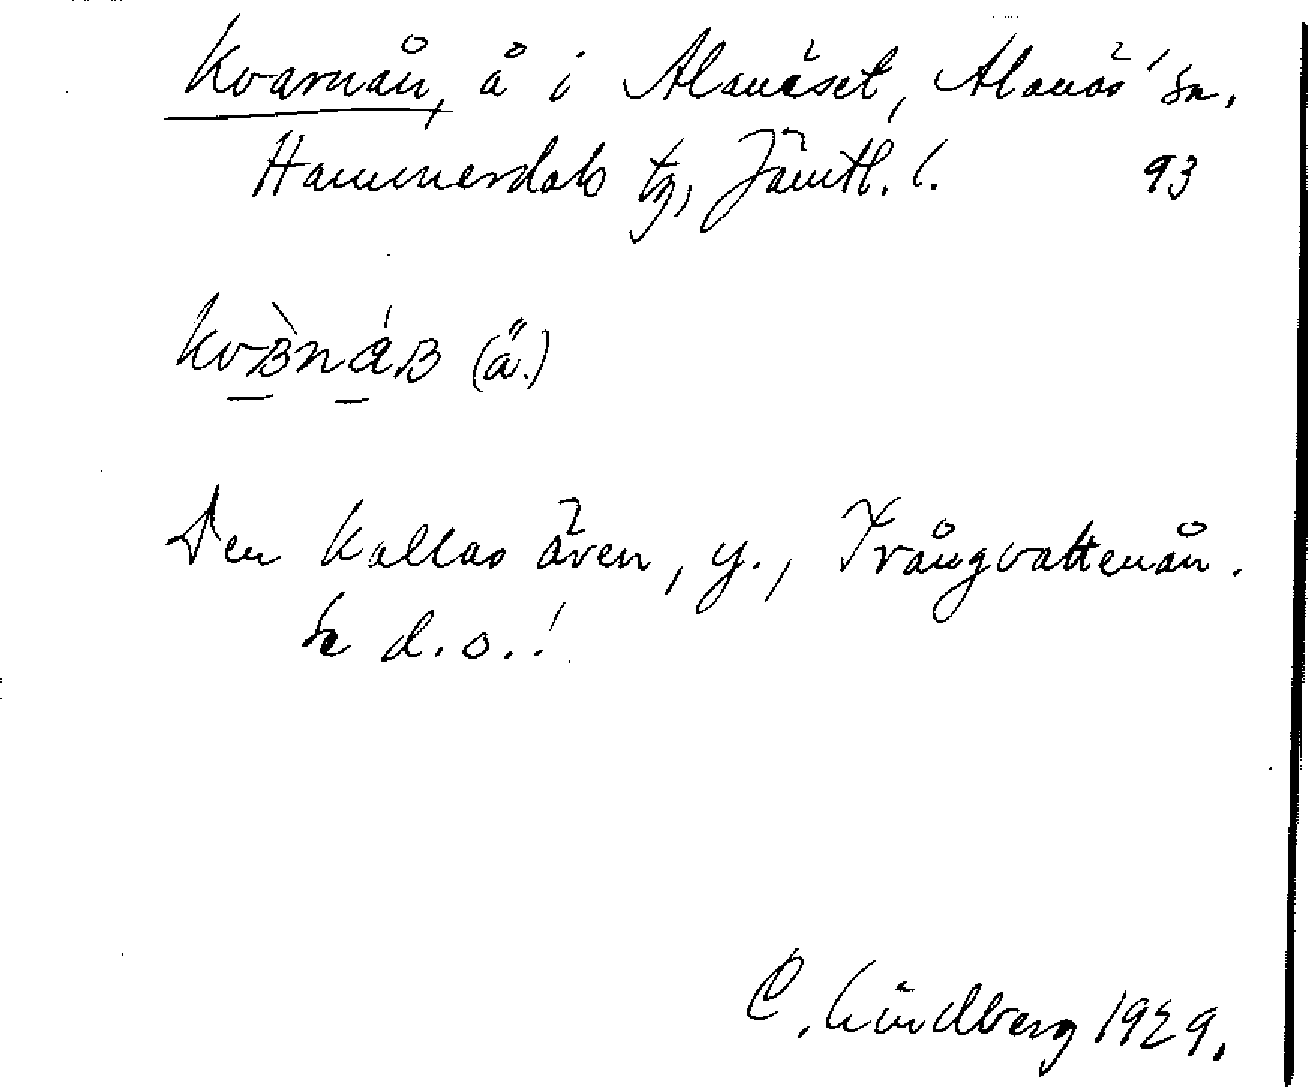 Kvarnån, å i Alanäset, Alanäs' sn,
Hammerdals tg, Jämtl. l. 93
(ä.)
Den kallas även, y., Trångvattenån.
Se d. o.!
C. Lindberg 1929.